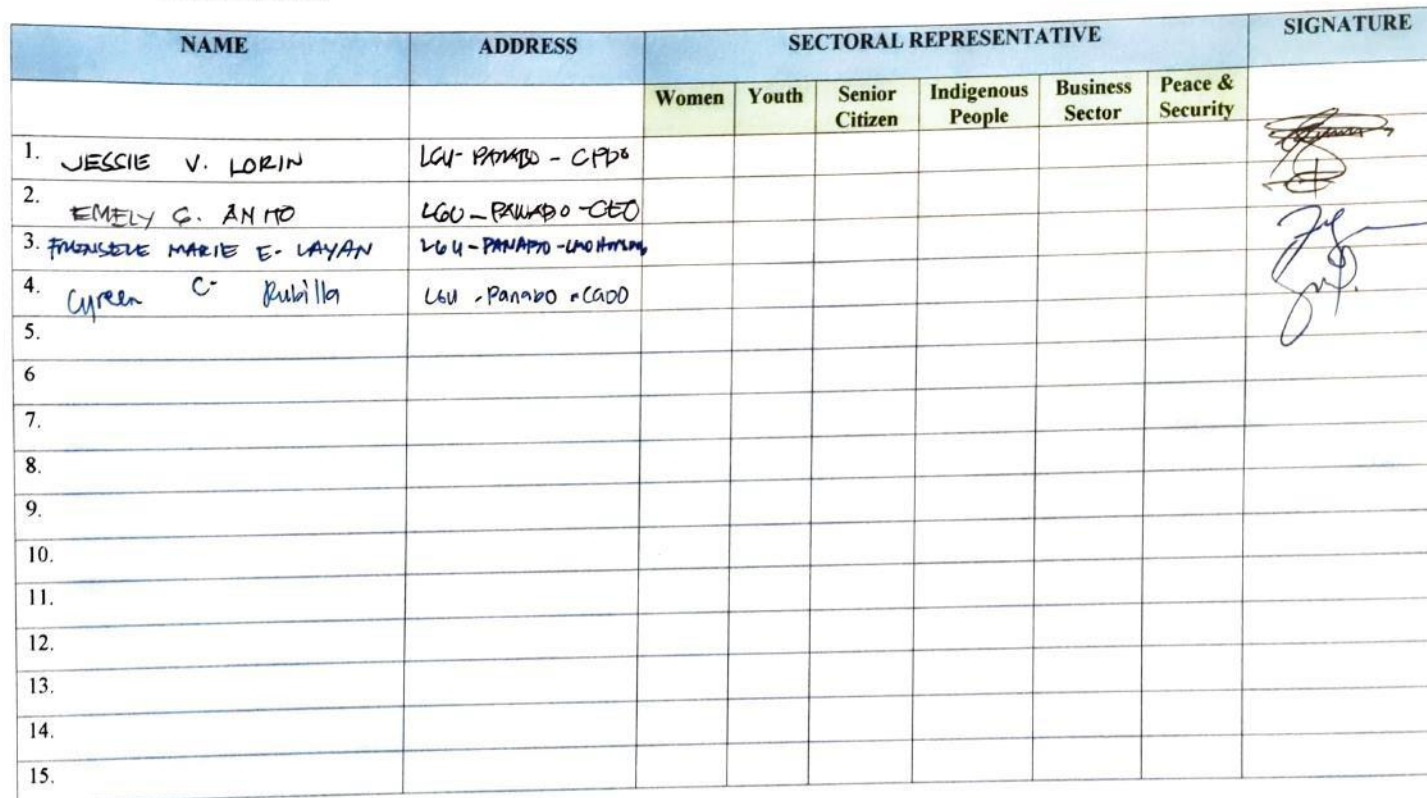 NAME ADDRESS SECTORAL REPRESENTATIVE SIGNATURE
Women Youth Senior Citizen Indigenous People Business Sector Peace & Security
1. JESSIE V. LORIN LGU-PANABO - CPDO
2. EMELY G. ANITO LGU-PANABO-CEO
3. MARIE E. LAYAN LGU-PANABO-
4. Cyreen C. Rubilla LGU-Panabo-
5.
6
7.
8.
9.
10.
11.
12.
13.
14.
15.